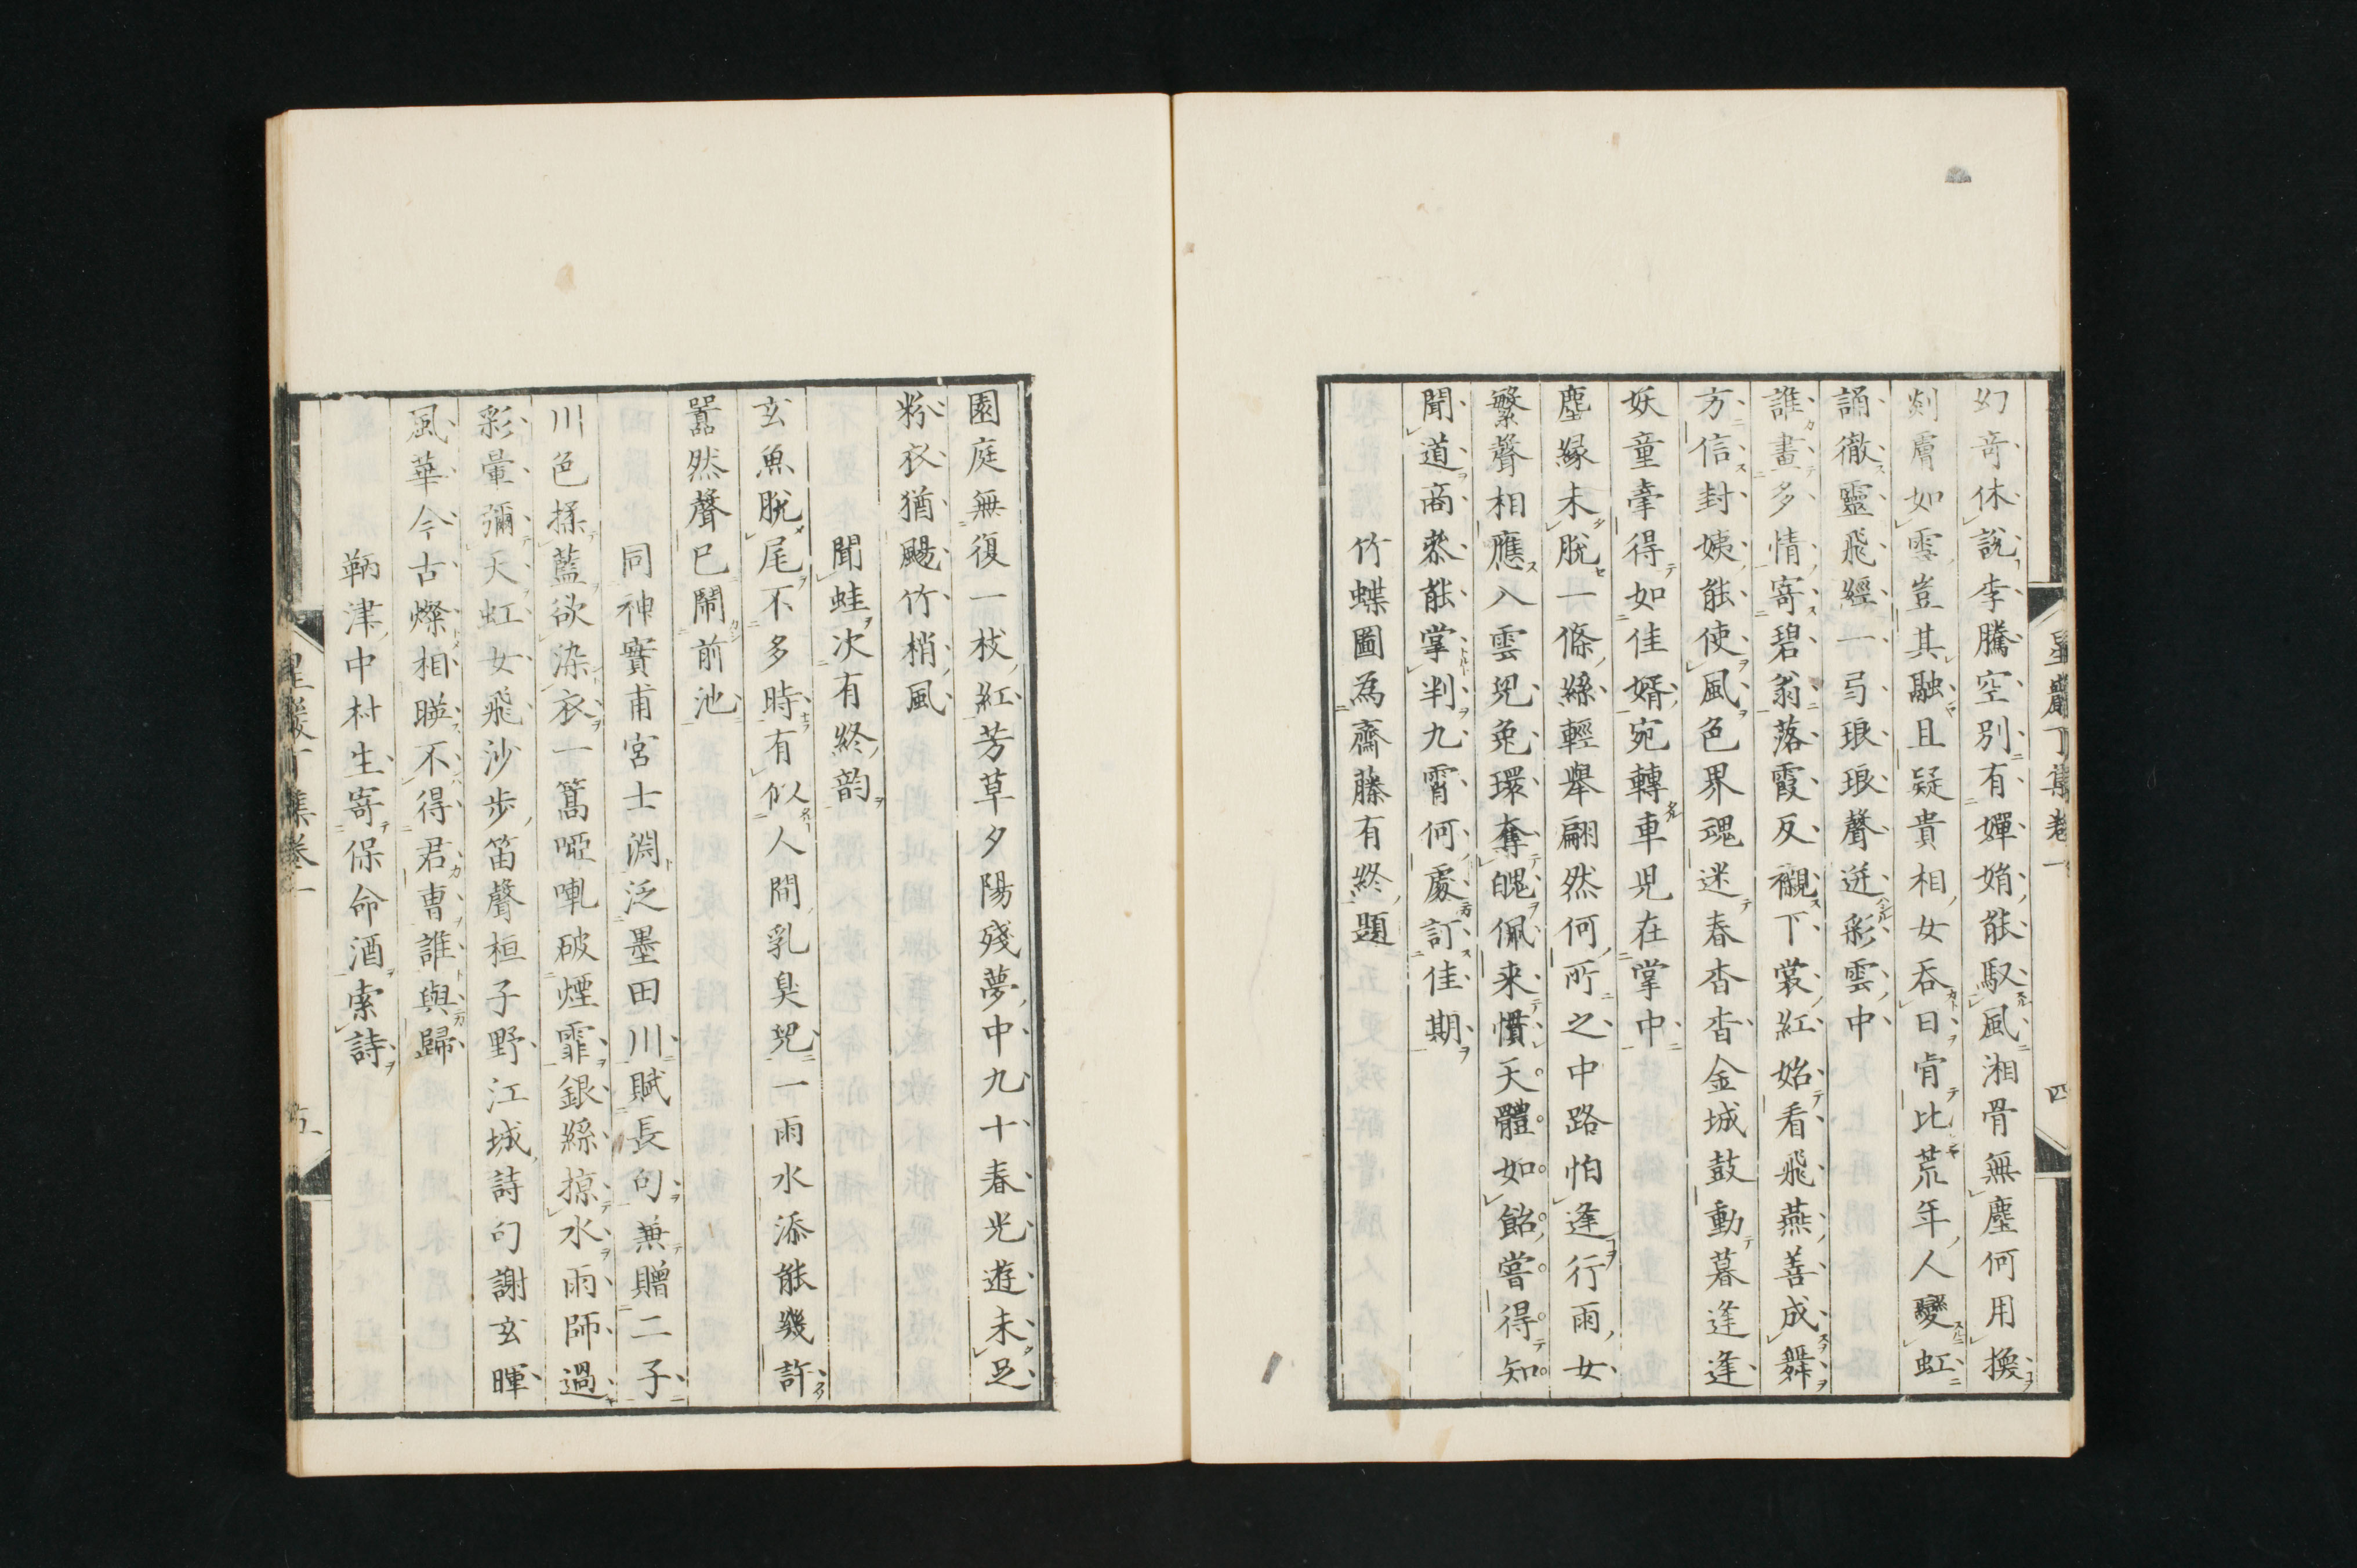 星巖丁集卷一
四
幻奇休說李騰空別有嬋娟能馭風湘骨無塵何用換
剡膚如雪豈其融且疑貴相女吞日肯比荒年人變虹
誦徹靈飛經一弓琅琅聲迸彩雲中
誰畫多情寄碧翁落霞反襯下裳紅始看飛燕善成舞
方信封姨能使風色界魂迷春杳杳金城鼓動暮逢逢
妖童幸得如佳婿宛轉車児在掌中
塵緣未脫一條絲輕舉翩然何所之中路怕逢行雨女
繁聲相應入雲兒兔環奪魄佩来慣天體如飴嘗得知
聞道商叅能掌判九霄何處訂佳期
竹蝶圖為齋藤有終題
園庭無復一枝紅芳草夕陽殘夢中九十春光遊未足
粉衣猶颺竹梢風
聞蛙次有終韵
玄魚脫尾不多時有似人間乳臭兒一雨水添能幾許
嚣然聲已鬧前池
同神寶甫宮士淵泛墨田川賦長句兼贈二子
川色揉藍欲染衣一篙啞軋破煙霏銀絲掠水雨師過
彩暈彌天虹女飛沙步笛聲桓子野江城詩句謝玄暉
風華今古燦相暎不得君曹誰與歸
鞆津中村生寄保命酒索詩
星巖丁集卷一
五